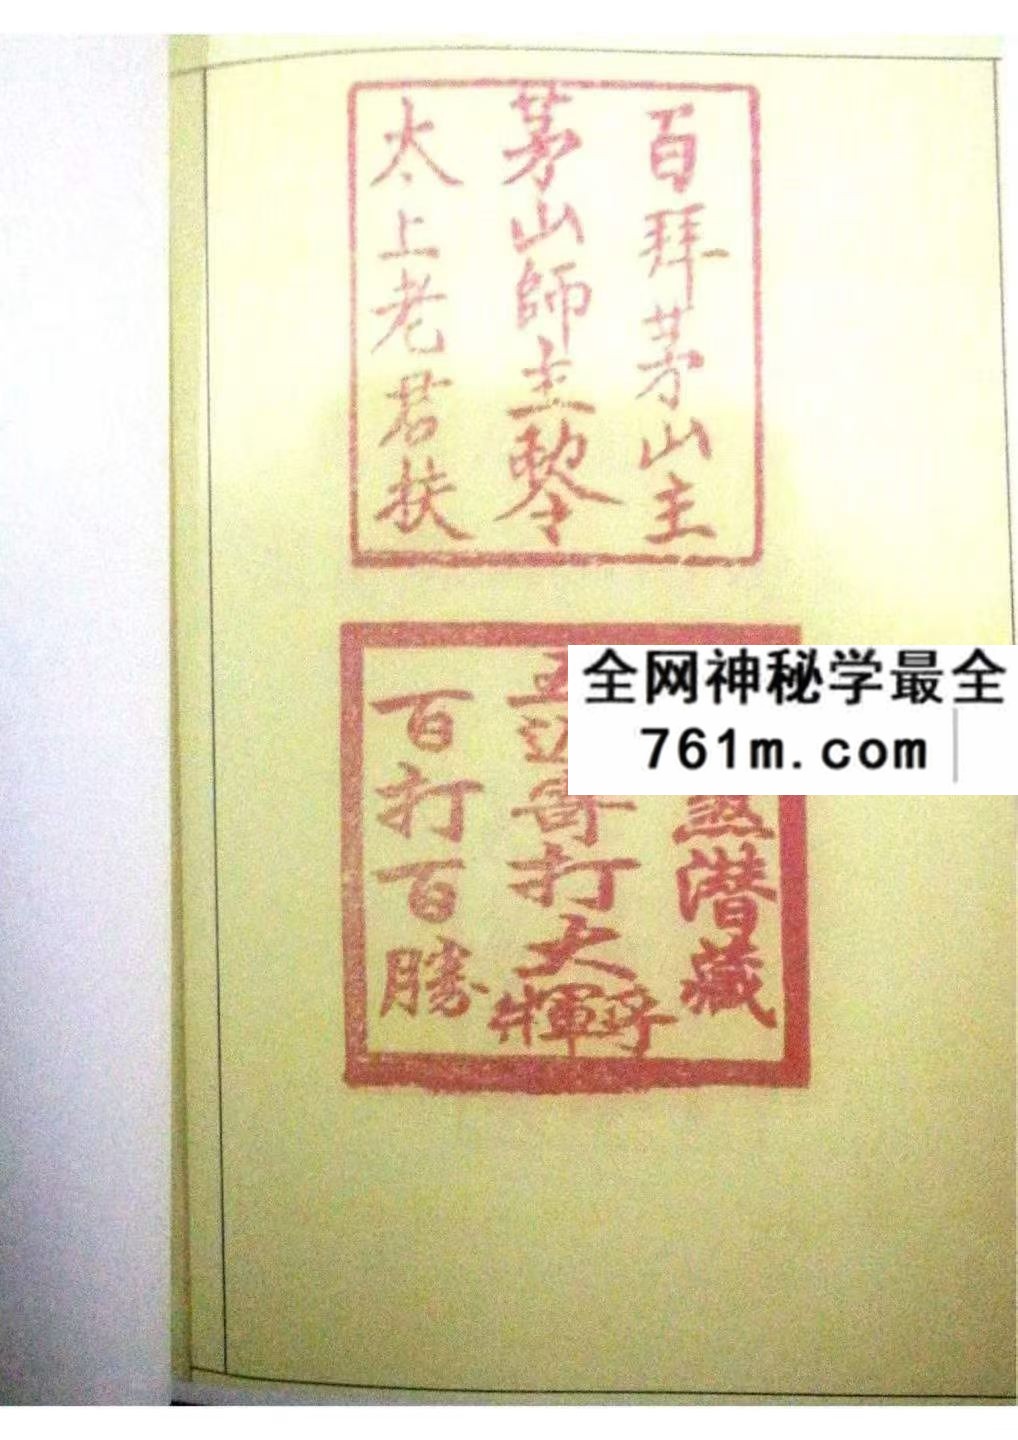 百拜茅山主
茅山師主
太上老君扶
全网神秘学最全
761m.com
煞潜藏
打大
百打百勝